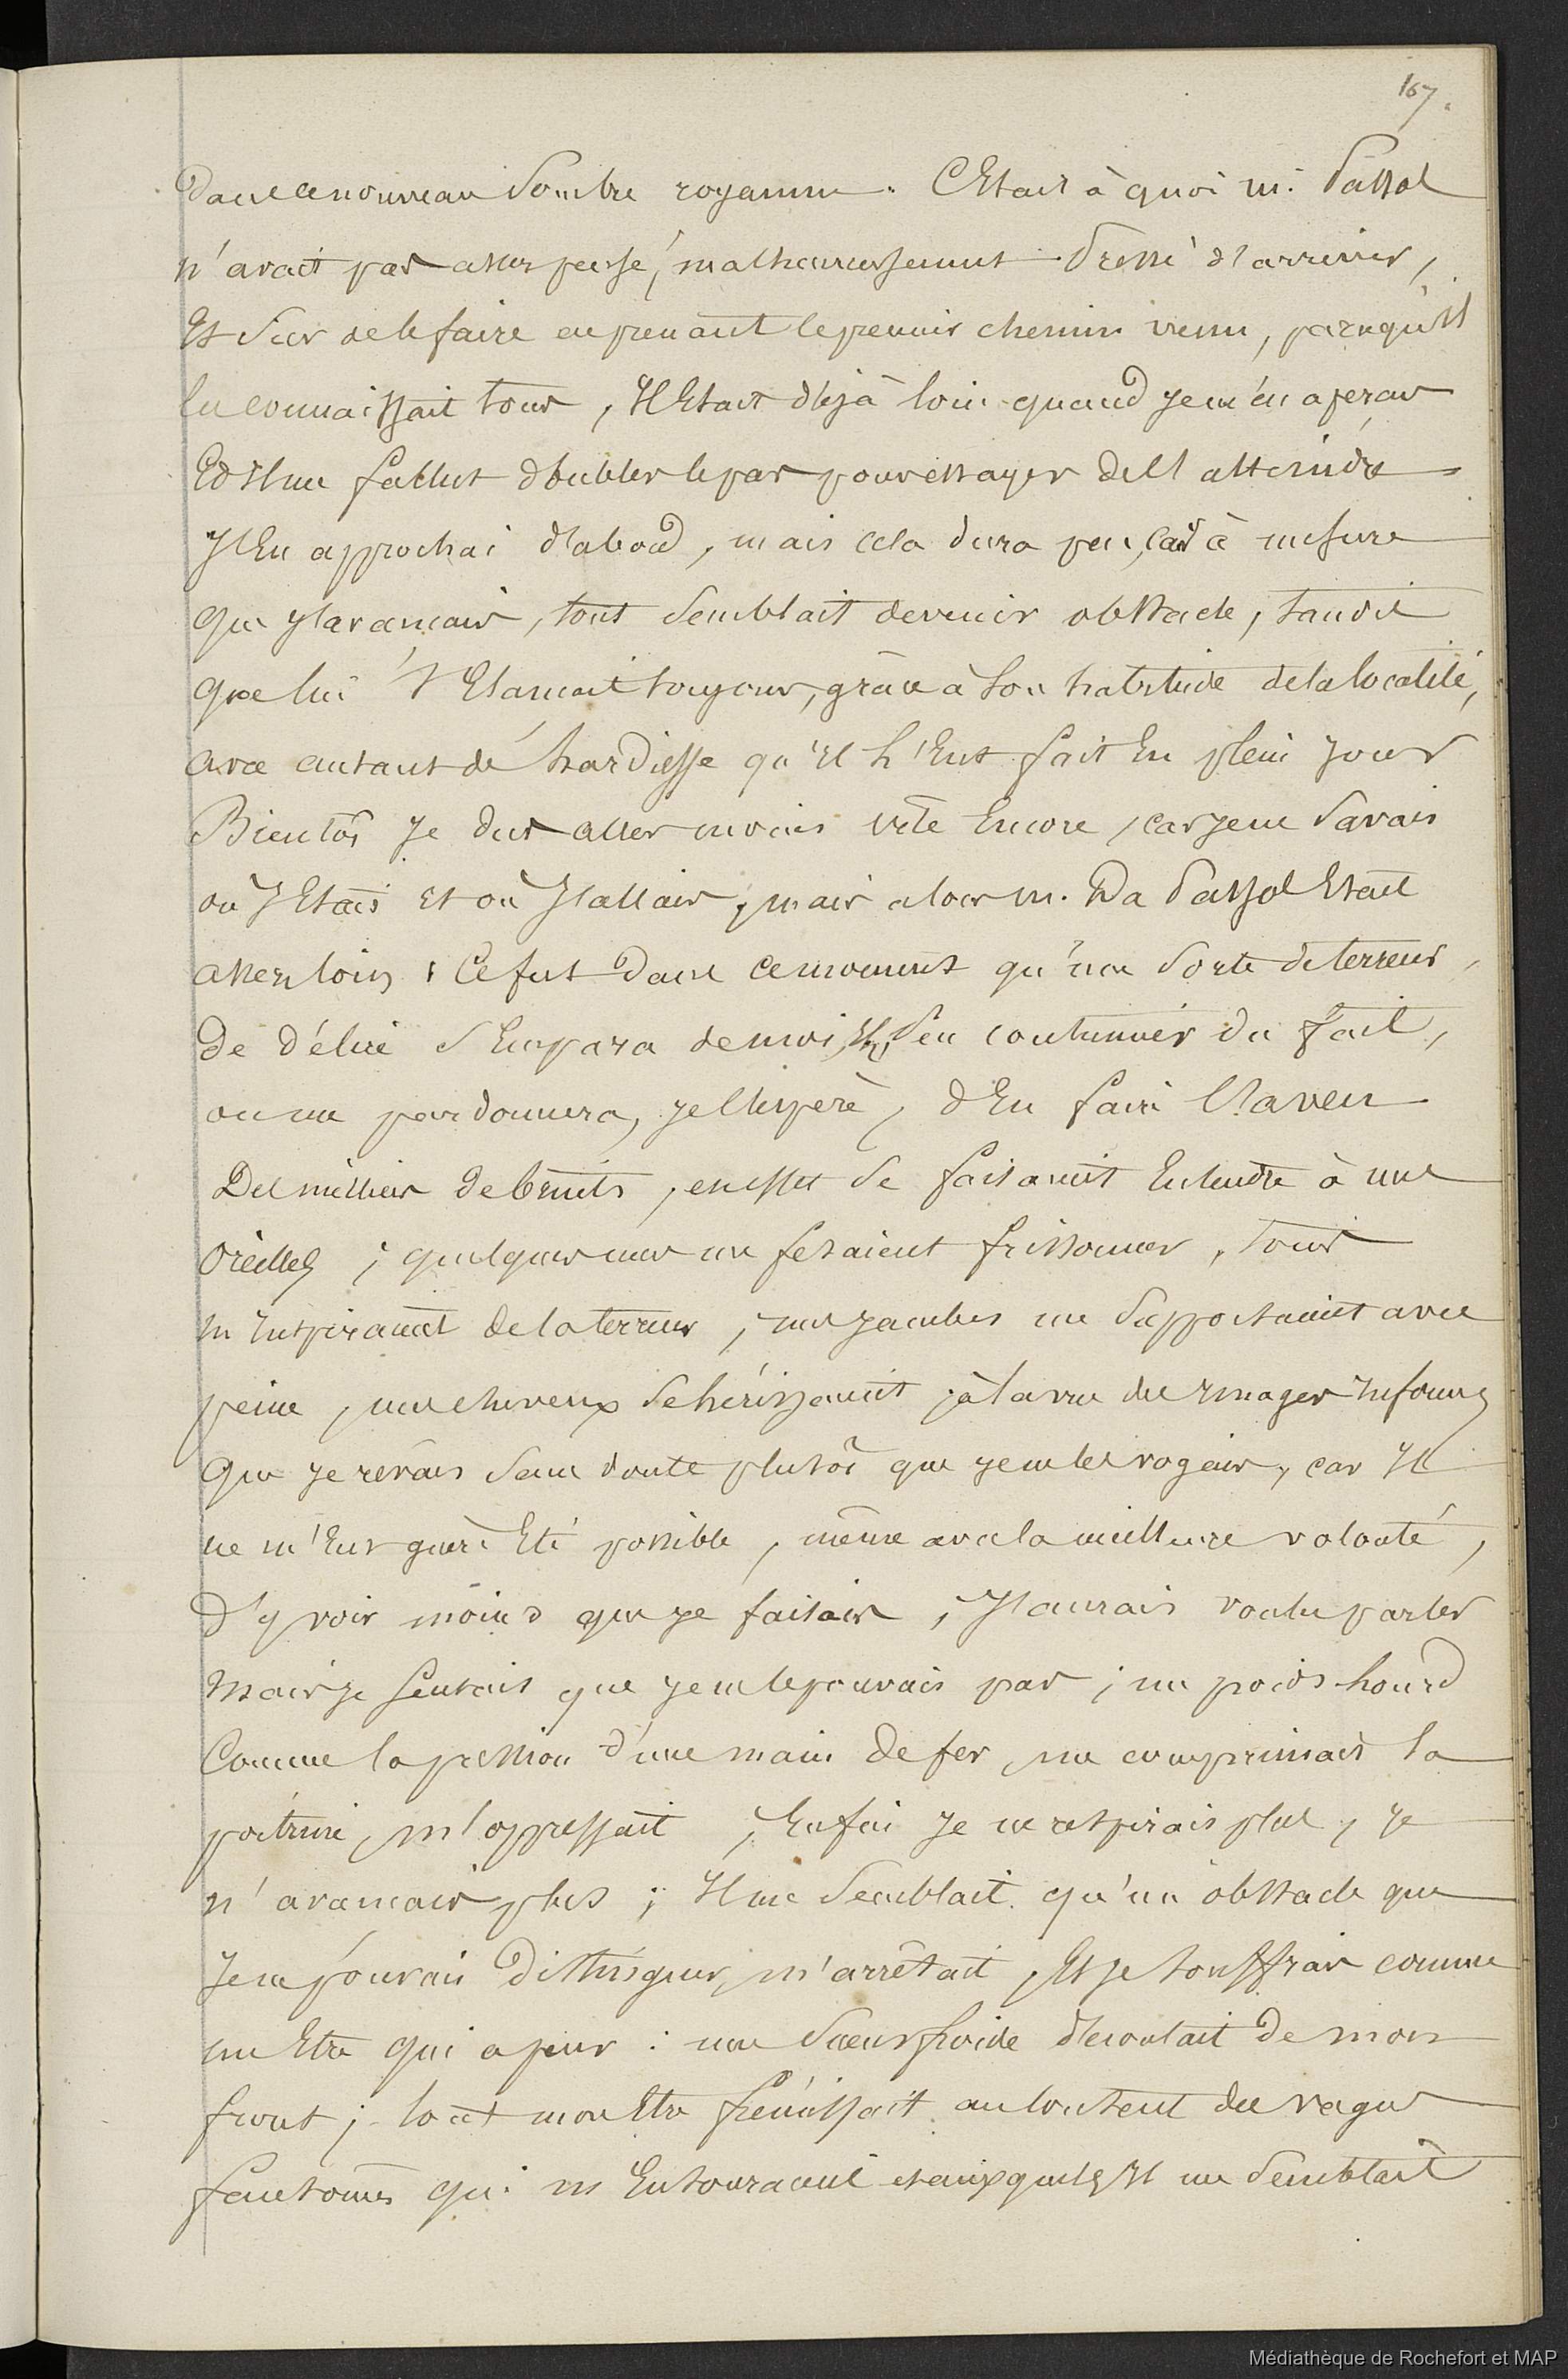 167.
dans ce nouveau sombre royaume. C'Etait à quoi m. Passol
n'avait pas assez pensé, malheureusement. Pressé d'arriver,
Et sur de le faire en prenant le premier chemin venu, parcequ'il
les connaissait tous, Il Etait déjà loin quand je m'en aperçus
Et Il me fallut doubler le pas pour essayer de l'atteindre
J'En approchai d'abord, mais cela dura peu, car à mesure
que j'avançais, tout semblait devenir obstacle, tandis
que lui s'Elançait toujours, grâce à son habitude de la localité,
avec autant de hardiesse qu'Il l'Eut fait En plein jour
Bientôt je dus aller moins vite Encore, car je ne savais
où J'Etais Et où J'allais, mais alors m. Da Passol Etait
assez loin; Ce fut dans ce moment qu'une sorte de terreur,
de délire s'Empara de moi, Et, sûr coutumier du fait,
on me pardonnera, je l'Espère, d'En faire l'aveu
Des milliers de bruits, en effet se faisaient Entendre à mes
oreilles; quelques uns me fesaient frissonner, tous
m'Inspiraient de la terreur; mes jambes me supportaient avec
peine, mes cheveux se hérissaient à la vue des Images Informes
que je rêvais sans doute plutôt que je ne les voyais, car Il
ne m'Eut guère Eté possible, même avec la meilleure volonté,
d'y voir moins que je faisais; J'aurais voulu parler
mais je sentais que je ne le pouvais pas; un poids lourd
Comme la pression d'une main de fer, me comprimait la
poitrine, m'oppressait; Enfin je ne respirais plus, je
n'avançais plus; Il me semblait qu'un obstacle que
Je ne pouvais distinguer, m'arrêtait, Et je souffrais comme
un Etre qui a peur: une sueur froide découlait de mon
front; tout mon Etre frémissait au contact des vagues
fantômes qui m'Entouraient et auxquels Il me semblait
Médiathèque de Rochefort et MAP